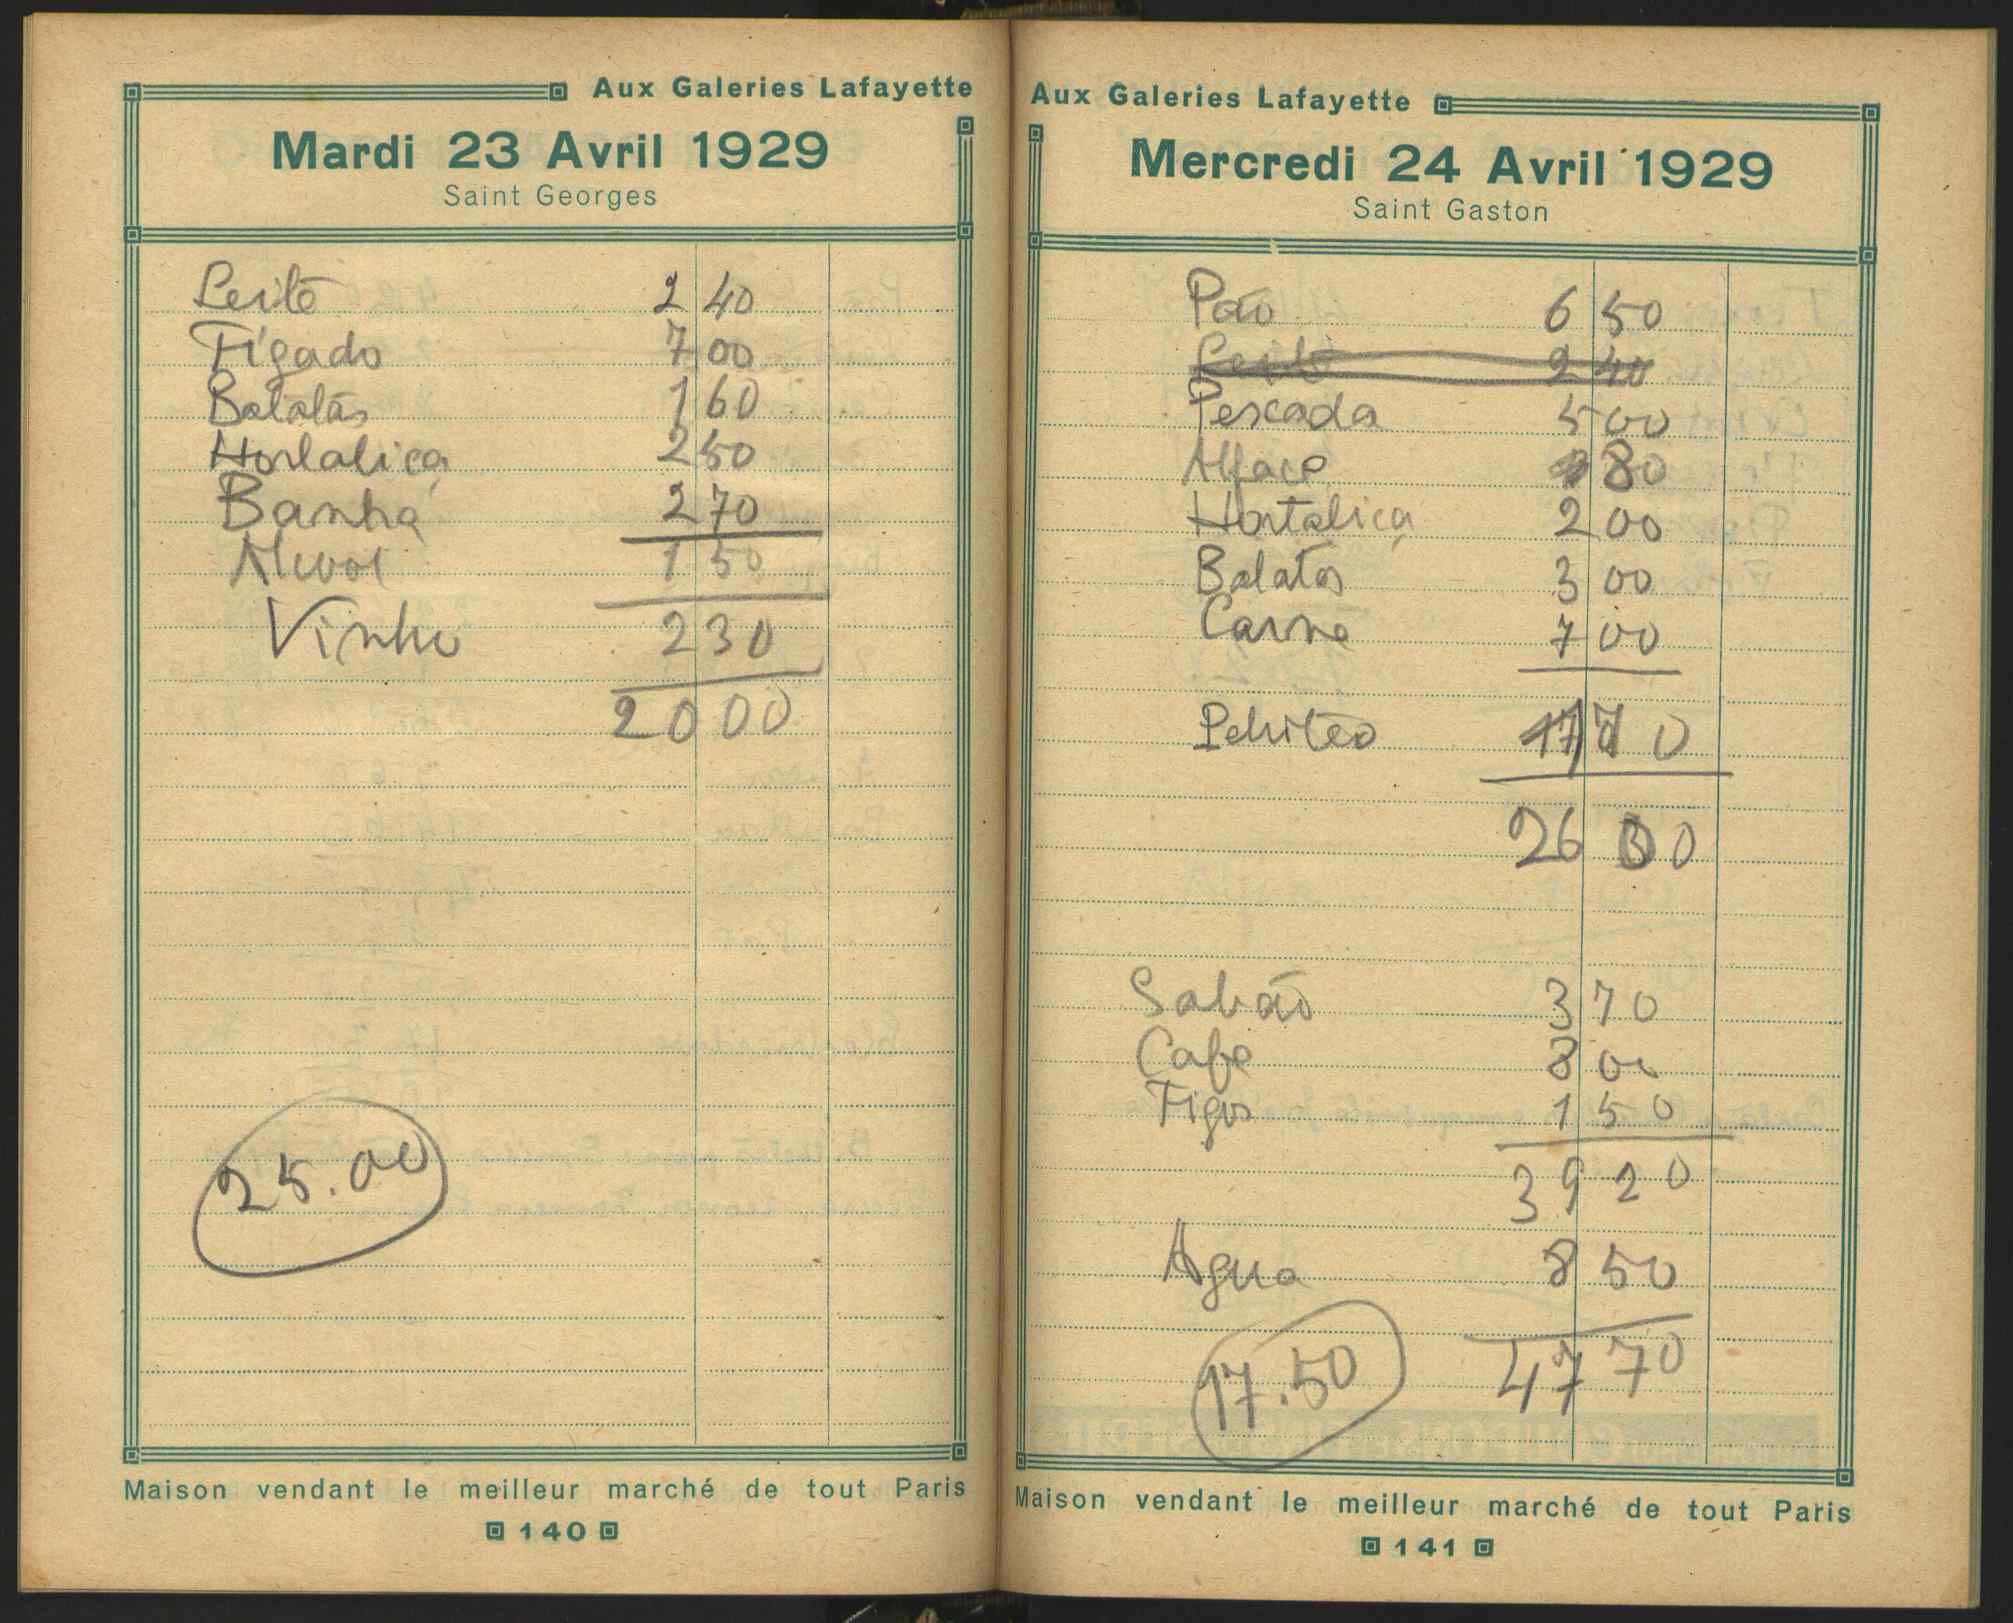 Aux Galeries Lafayette
Mardi 23 Avril 1929
Saint Georges
Leite 2 40
Fígado 7 00
Batatas 1 60
Hortaliça 2 50
Banha 2 70
Alcool 1 50
Vinho 2 30
20 00
25.00
Maison vendant le meilleur marché de tout Paris
140
Aux Galeries Lafayette
Mercredi 24 Avril 1929
Saint Gaston
Pão 6 50
Leite 2 40
Pescada 5 00
Alface 80
Hortaliça 2 00
Batatas 3 00
Carne 7 00
Petriteo 1 70
26 00
Sabão 3 70
Cafe 8 00
Figos 1 50
39 20
Agua 8 50
47 70
17.50
Maison vendant le meilleur marché de tout Paris
141